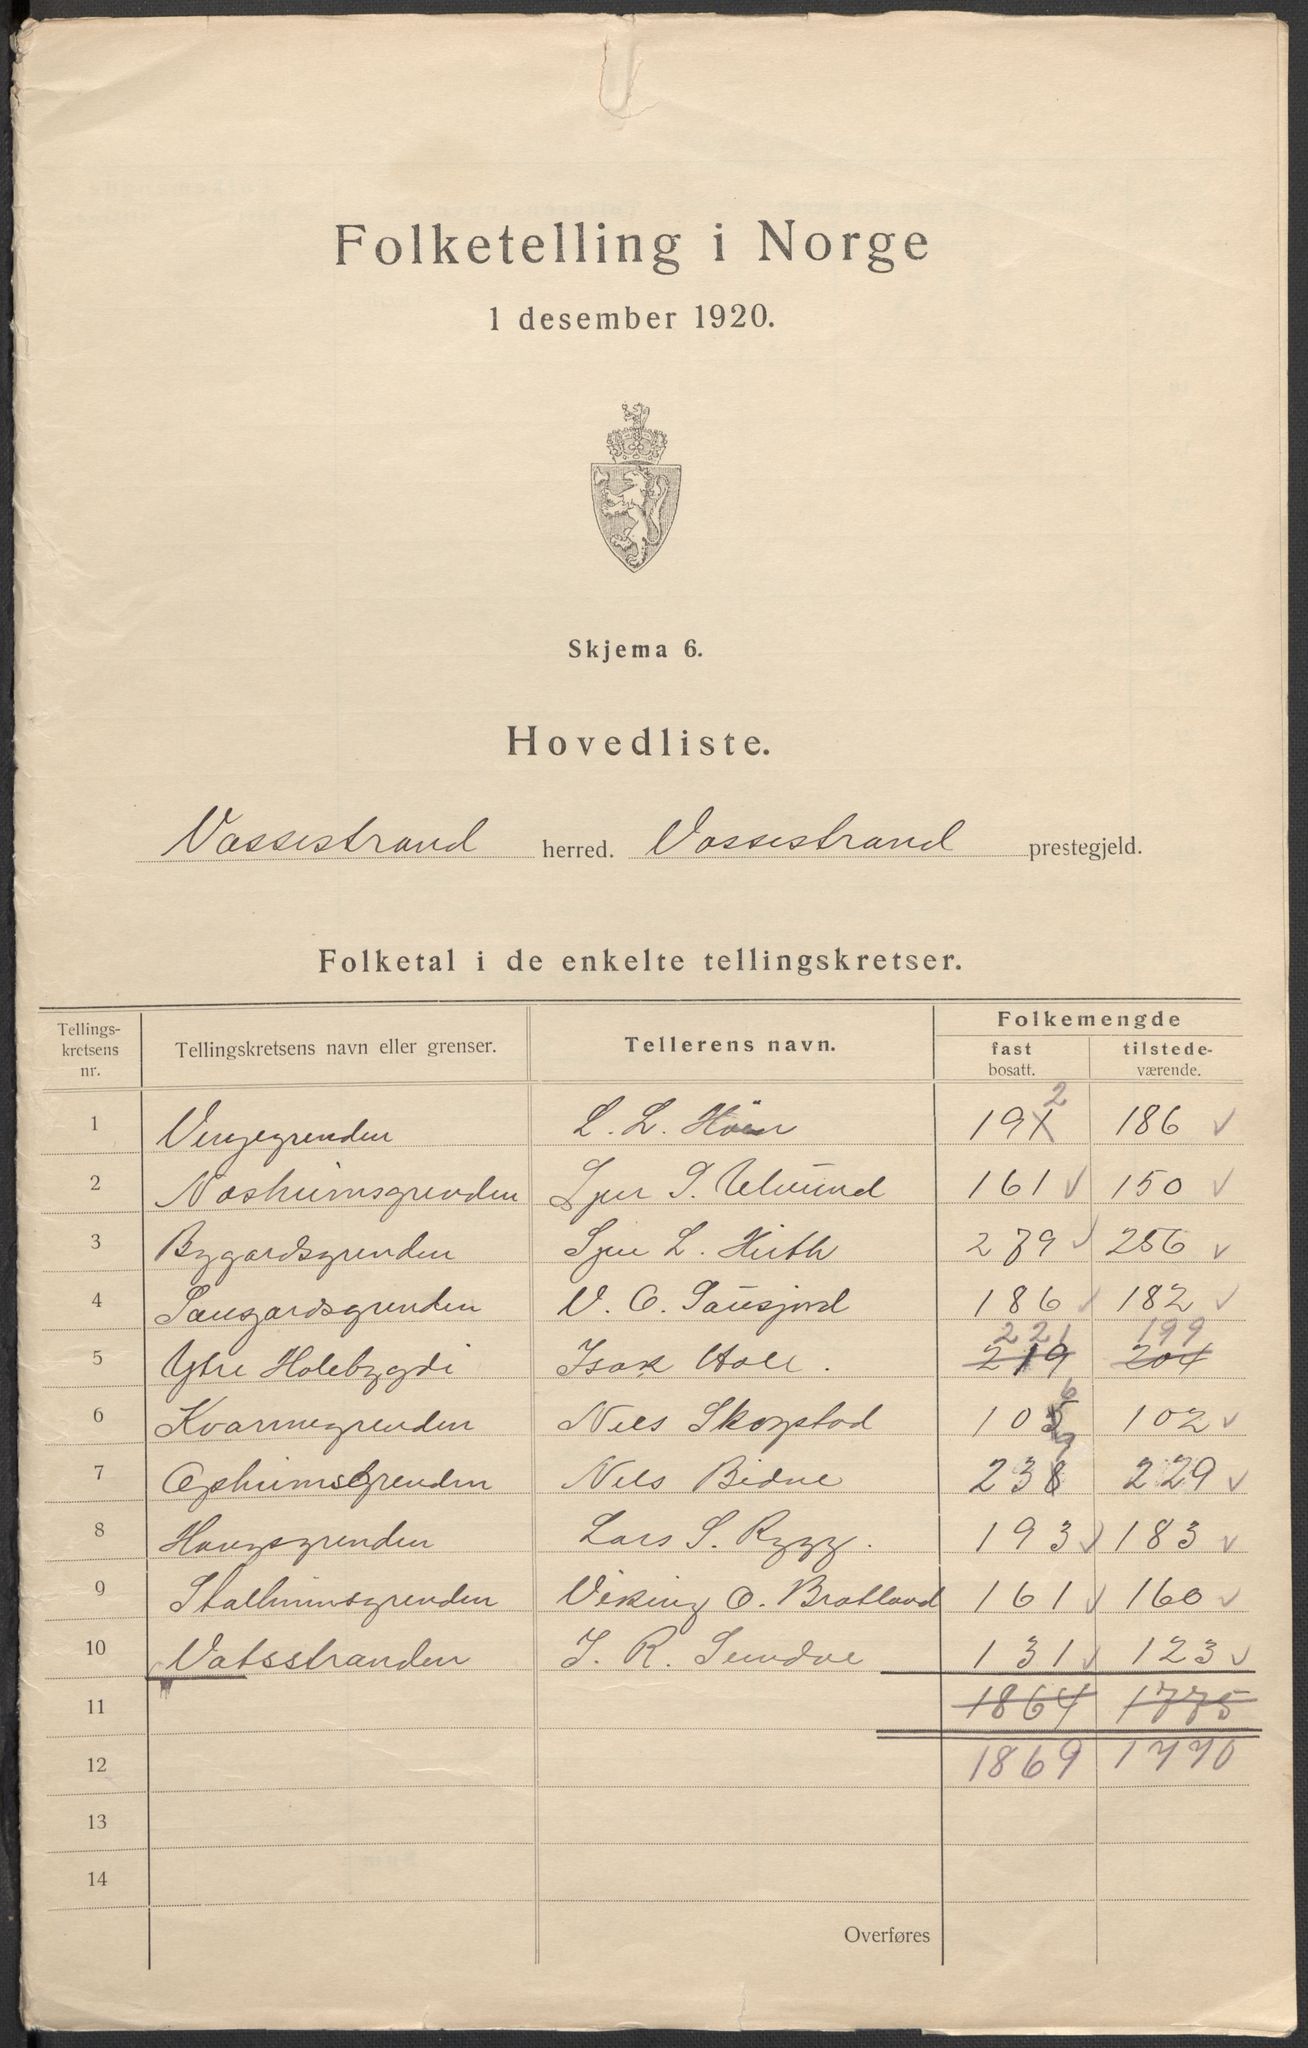 Folketelling i Norge
1 desember 1920.
Skjema 6.
Hovedliste.
Vossestrand herred. Vossestrand prestegjeld.
Folketal i de enkelte tellingskretser.
Tellings-kretsens nr. Tellingskretsens navn eller grenser. Tellerens navn. Folkemengde
fast bosatt. tilstede-værende.
1 Vinjegrenden L. L. 191 2 186 ✓
2 Nosheimsgrenden Sjur S. Ulvund 161 ✓ 150 ✓
3 Bygardsgrenden Sjur L. Hirth 279 ✓ 256 ✓
4 Saugardsgrenden V. O. Sausjord 186 ✓ 182 ✓
221 199
5 Ytre Holebygdi Isak Hole. 219 204
6 Kvarmegrenden Nils Skogstad 105 6 102 ✓
7 Opheimsgrenden Nils Bidne 238 9 229 ✓
8 Haugsgrenden Lars S. Rygg. 193 ✓ 183 ✓
9 Stalheimsgrenden Viking O. Bratland 161 ✓ 160 ✓
10 Vatsstranden I. R. Sundve 131 ✓ 123 ✓
11 1864 1775
12 1869 1770
13
14
Overføres